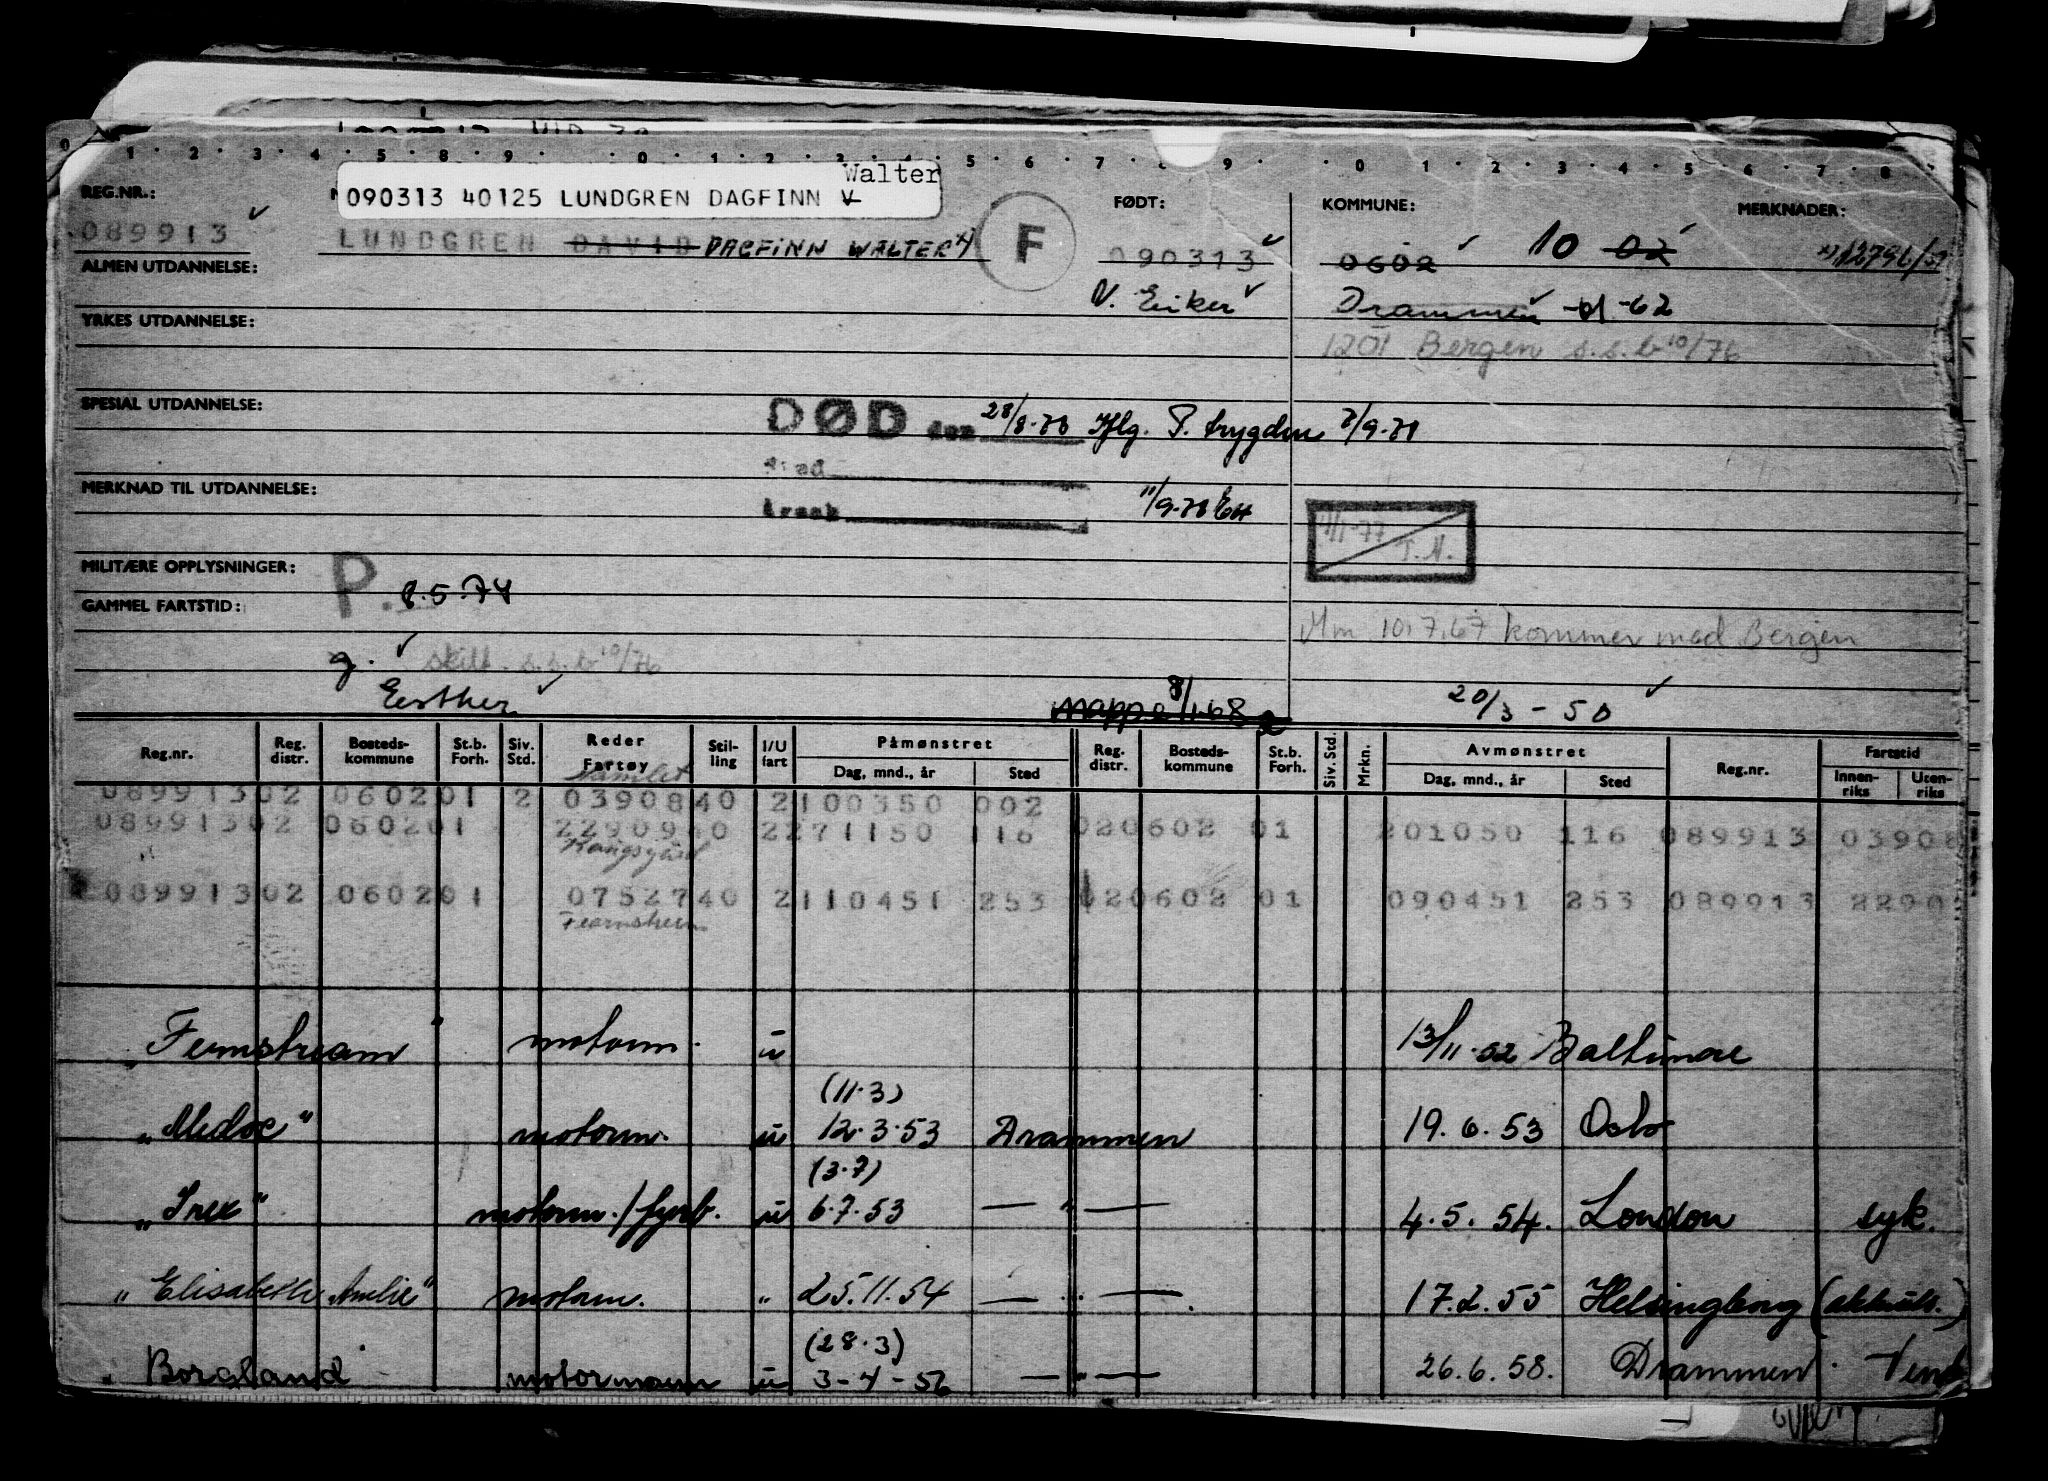 Walter
090313 40125 LUNDGREN DAGFINN V
REG.NR.:
FØDT:
KOMMUNE:
MERKNADER:
089913
LUNDGREN DAVID DAGFINN WALTER
F
090313
0602
10 02
ALMEN UTDANNELSE:
V. Eiker
Drammen -62
YRKES UTDANNELSE:
1201 Bergen s.s.b 10/76
SPESIAL UTDANNELSE:
DØD den 28/8-78 Iflg. P. trygden 7/9-78
sted
MERKNAD TIL UTDANNELSE:
årsak
11/9-78
11/1-77
T.M.
MILITÆRE OPPLYSNINGER:
P. 8.5.74
GAMMEL FARTSTID:
Mm. 10.7.67 kommer med Bergen
g. skill. s.s.b 10/76
Esther
mappe 8/1-68
20/3-50
Reg.nr.
Reg. distr.
Bosteds-kommune
St.b. Forh.
Siv. Std.
Reder
Fartøy
Stil-ling
I/U fart
Påmønstret
Dag, mnd., år
Sted
Reg. distr.
Bosteds-kommune
St.b. Forh.
Siv. Std.
Mrkn.
Avmønstret
Dag, mnd., år
Sted
Reg.nr.
Fartstid
Innen-riks
Uten-riks
Samlet
089913 02 0602 01 2 03908 40 2 100350 002
089913 02 0602 01 22909 40 2 271150 116 02 0602 01 201050 116 089913 03908
Kongsgård
089913 02 0602 01 07527 40 2 110451 253 02 0602 01 090451 253 089913 2290
Fernstream
"Fernstream" motorm. u 13/11-52 Baltimore
(11.3)
"Medoc" motorm. u 12.3.53 Drammen 19.6.53 Oslo
(3.7)
"Irex" motorm./fyrb. u 6.7.53 — " — 4.5.54. London syk.
"Elisabeth Amlie" motorm. " 25.11.54 — " — 17.2.55 Helsingborg
(28.3)
"Borgland motormann u 3-4-56 — " — 26.6.58. Drammen